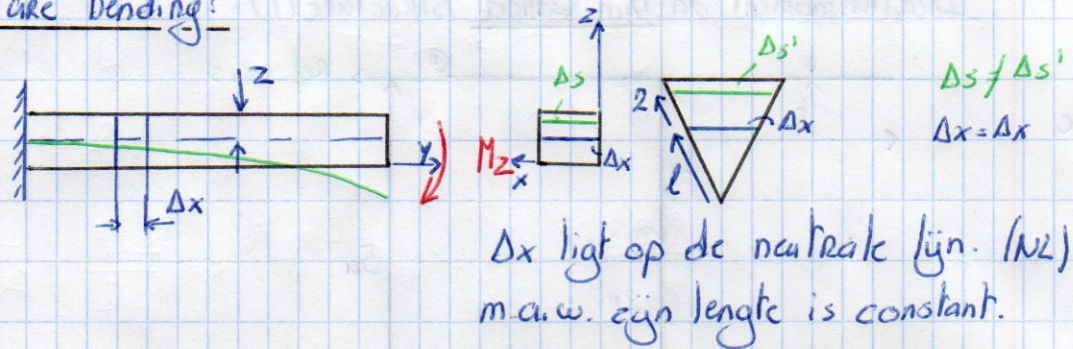 are bending:
z
Δx
y
Mz
x
Δs
z
Δx
Δs'
z
l
Δx
Δs ≠ Δs'
Δx = Δx
Δx ligt op de neutrale lijn. (NL)
m.a.w. zijn lengte is constant.